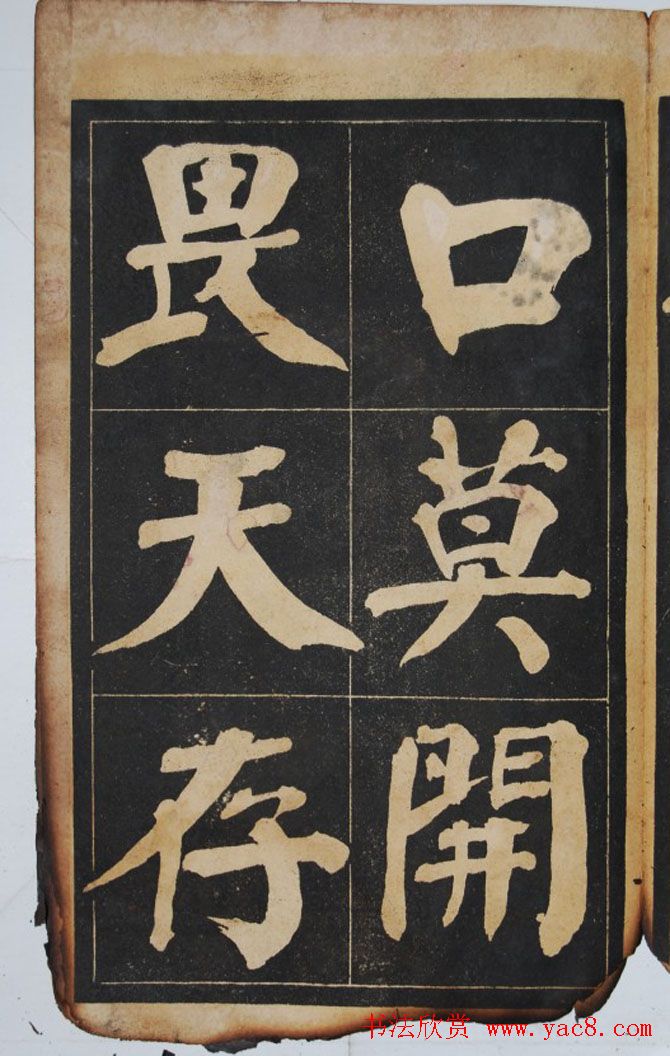 口莫開
畏天存
书法欣赏 www.yac8.com